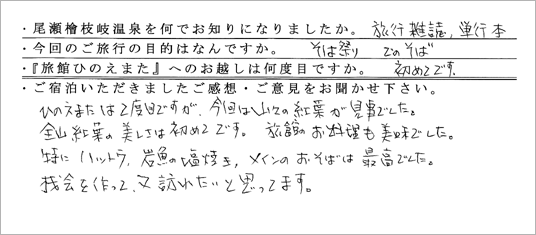 ・尾瀬檜枝岐温泉を何でお知りになりましたか。 旅行雑誌, 単行本
・今回のご旅行の目的はなんですか。 そば祭り でのそば
・『旅館ひのえまた』へのお越しは何度目ですか。 初めてです。
・ご宿泊いただきましたご感想・ご意見をお聞かせ下さい。
ひのえまたは2度目ですが、今回は山々の紅葉が見事でした。
全山紅葉の美しさは初めてです。 旅館のお料理も美味でした。
特に ハットウ, 岩魚の塩焼き, メインのおそばは 最高でした。
機会を作って、又訪れたいと思ってます。